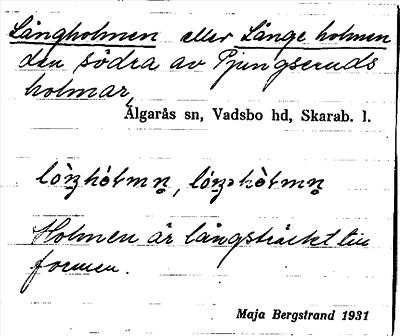 Långholmen eller Långe holmen
den södra av Pjungseruds
holmar,
Älgarås sn, Vadsbo hd, Skarab. l.
Holmen är långsträckt till
formen.
Maja Bergstrand 1931